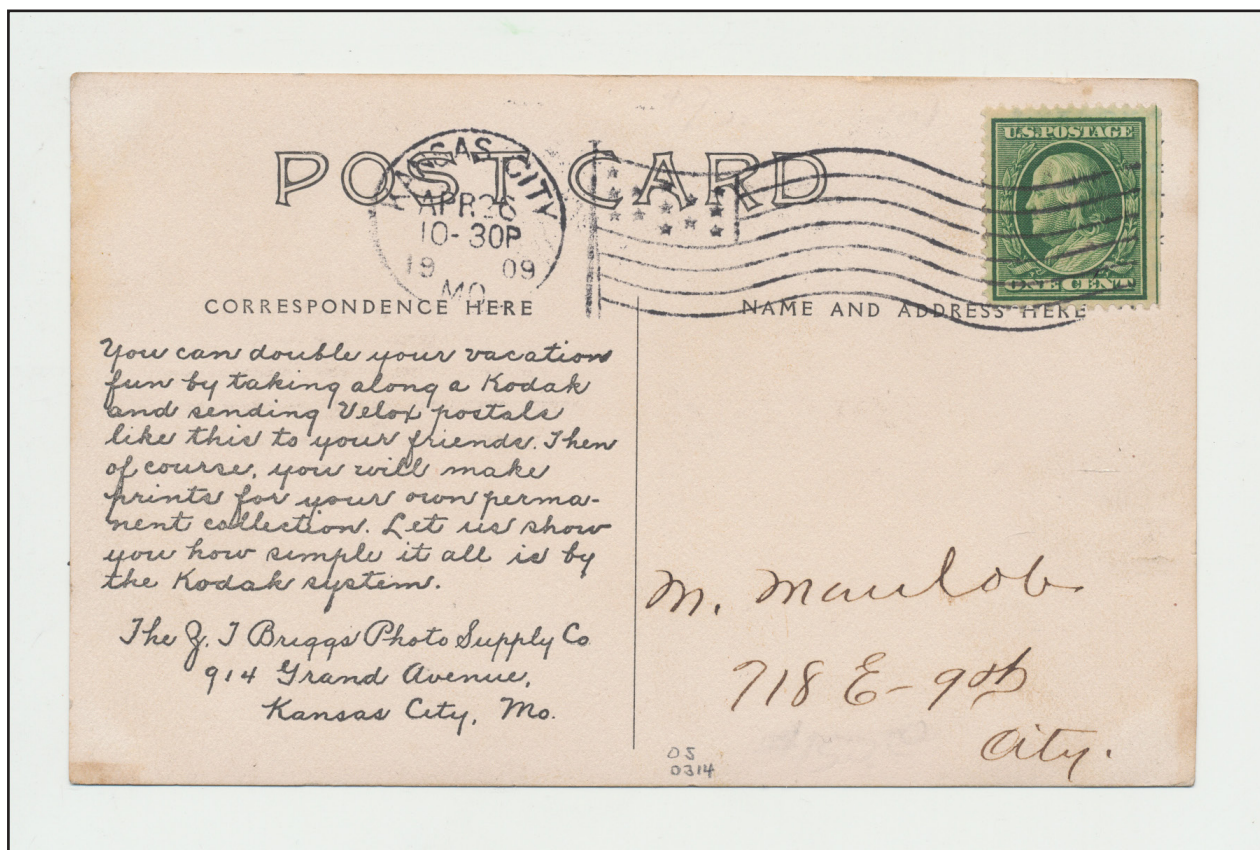 POST CARD
KANSAS CITY
APR 26
10-30P
1909
MO.
U.S. POSTAGE
ONE CENT
CORRESPONDENCE HERE
NAME AND ADDRESS HERE
You can double your vacation
fun by taking along a Kodak
and sending Velox postals
like this to your friends. Then
of course, you will make
prints for your own perma-
nent collection. Let us show
you how simple it all is by
the Kodak system.
The Z. T Briggs Photo Supply Co
914 Grand Avenue,
Kansas City, Mo.
M.
718 E- 9th
City.
DS
0314